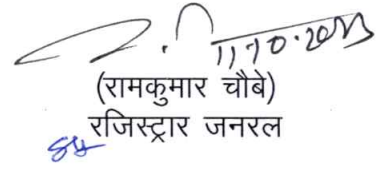 11.10.2023
(रामकुमार चौबे)
रजिस्ट्रार जनरल